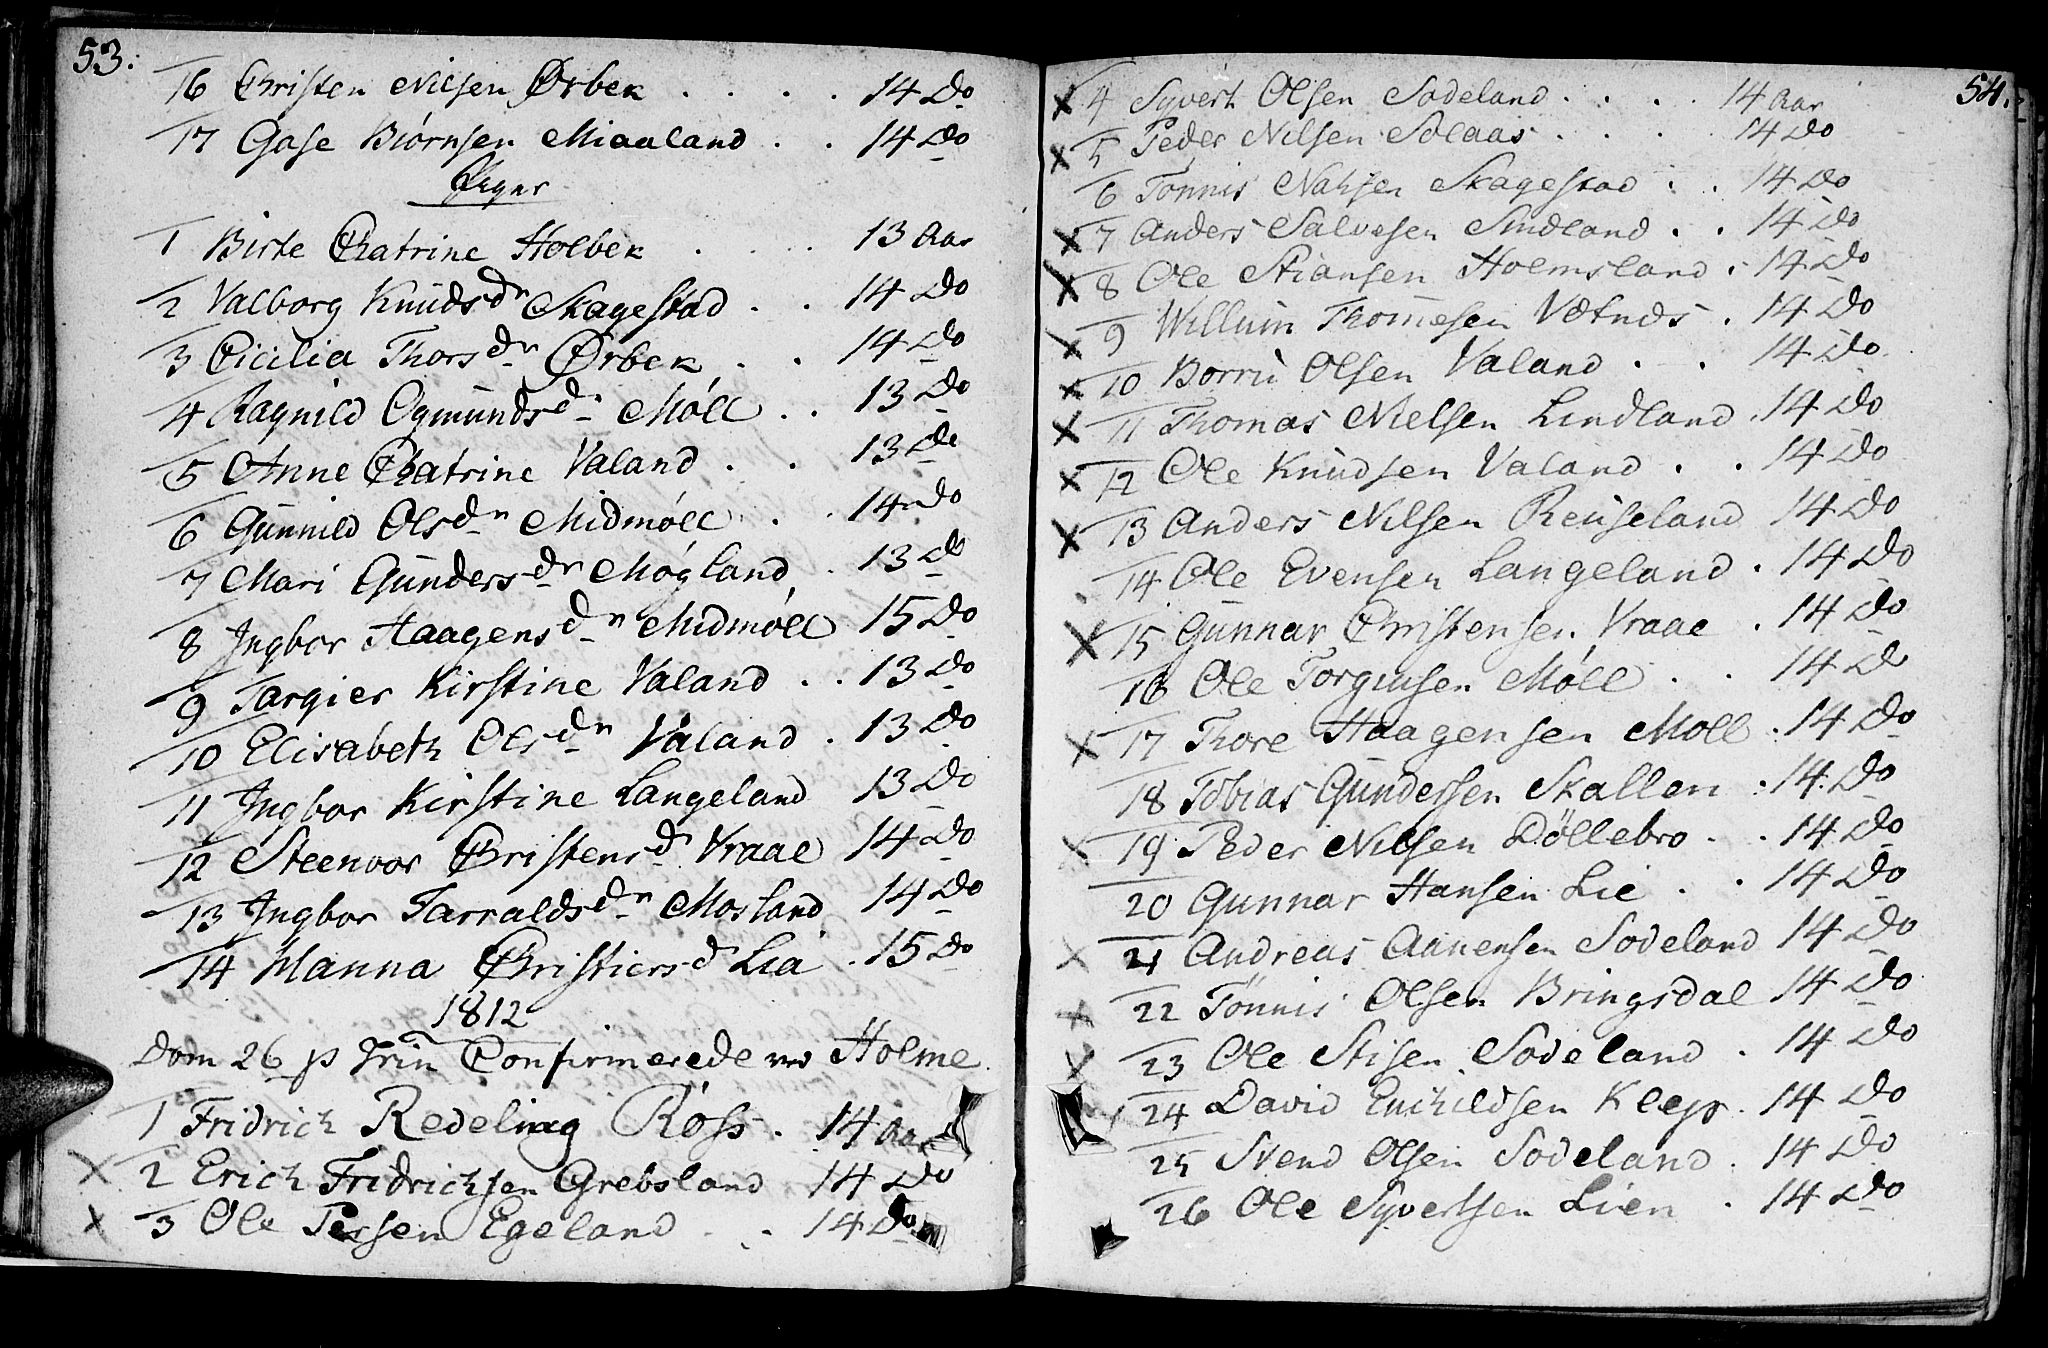 53.
16 Christen Nilsen Ørbek . . . . 14 Do
17 Gase Biørnsen Miaaland . . 14 Do
Piger
1 Birte Chatrine Holbek . . . . 13 Aar
2 Valborg Knudsdr Skagestad . . 14 Do
3 Cicilia Thorsdr Ørbek . . 14 Do
4 Ragnild Ogmundsdr Møll . . 13 Do
5 Anne Chatrine Valand . . 13 Do
6 Gunnild Olsdr Midmøll . . 14 Do
7 Mari Gundersdr Møgland . 13 Do
8 Ingbor Haagensdr Midmøll 15 Do
9 Targier Kirstine Valand . . 13 Do
10 Elisabeth Olsdr Valand . 13 Do
11 Ingbor Kirstine Langeland 13 Do
12 Steenvor Christensd Vraae 14 Do
13 Ingbor Tarraldsdr Mosland 14 Do
14 Hanna Christiersd Lia . 15 Do
1812
Dom 26 p Trin Confirmerede ved Holme
1 Fridrich Redeling Röss . 14 Aar
2 Erich Fridrichsen Grebsland 14 Do
3 Ole Persen Egeland . . . 14 Do
54.
4 Syvert Olsen Sodeland . . . . 14 Aar
5 Peder Nilsen Solaas . . . 14 Do
6 Tønnis Nahsen Skagestad . . 14 Do
7 Anders Salvesen Sindland . . 14 Do
8 Ole Stiansen Holmsland . 14 Do
9 Willum Thomesen Vætnes . 14 Do
10 Borru Olsen Valand . . 14 Do
11 Thomas Nielsen Lindland . 14 Do
12 Ole Knudsen Valand . . 14 Do
13 Anders Nilsen Reuseland 14 Do
14 Ole Evensen Langeland . 14 Do
15 Gunnar Christensen Vraae . 14 Do
16 Ole Torgiusen Møll . . 14 D
17 Thore Haagensen Moll . 14 Do
18 Tobias Gundersen Skallen . 14. Do
19 Peder Nilsen Döllebro . . 14 Do
20 Gunnar Hansen Lie . . 14 Do
21 Andreas Aanensen Sodeland 14 Do
22 Tønnis Olsen Bringsdal 14 Do
23 Ole Stisen Sodeland . 14 Do
24 David Enchildsen Klep . 14 Do
25 Svend Olsen Sodeland . 14 Do
26 Ole Syvertsen Lien . 14 Do